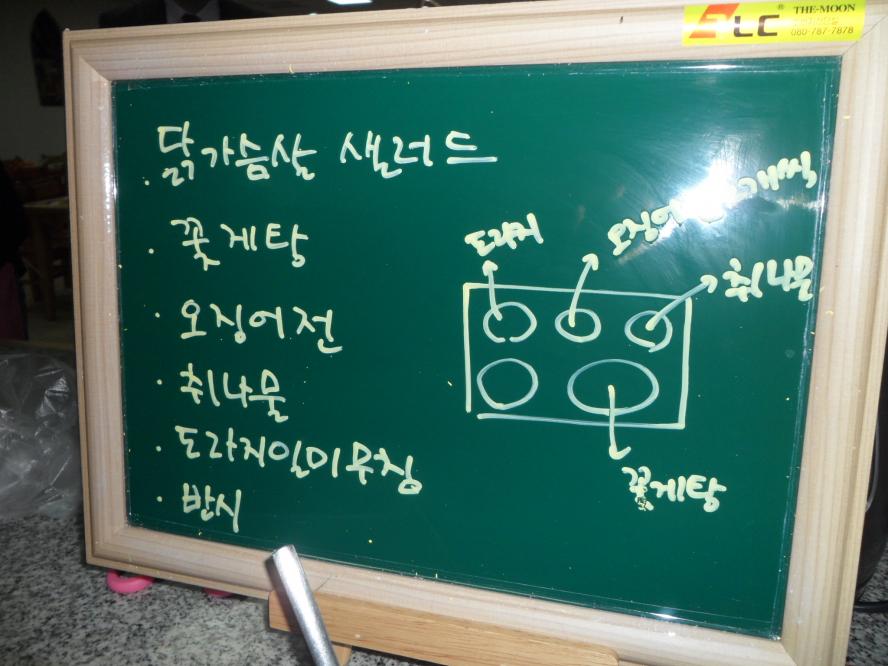 ELC® THE-MOON
080-787-7878
· 닭가슴살 샐러드
· 꽃게탕
· 오징어전
· 취나물
· 도라지일미무침
· 반시
도라지
오징어전 2개씩
취나물
꽃게탕